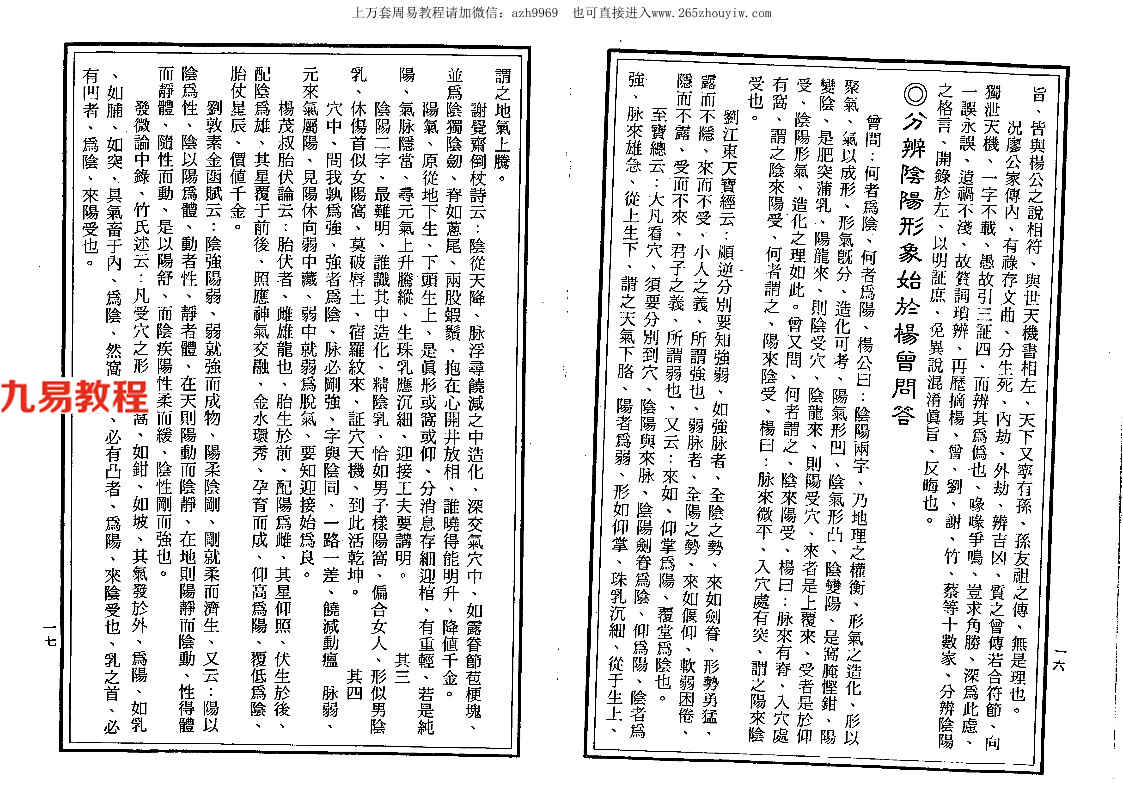 上万套周易教程请加微信：azh9969　也可直接进入www.265zhouyiw.com
旨、皆與楊公之說相符、與世天機書相左、天下又寧有孫、孫友祖之傳、無是理也。
況廖公家傳內、有祿存文曲、分生死、內劫、外劫、辨吉凶、質之曾傳若合符節、向
獨泄天機、一字不載、愚故引三証四、而辨其爲僞也、喙喙爭鳴、豈求角勝、深爲此慮、
一誤永誤、遺禍不淺、故贅詞瑣辨、再歷摘楊、曾、劉、謝、竹、蔡等十數家、分辨陰陽
之格言、開錄於左、以明証庶、免異說混淆眞旨、反晦也。
◎分辨陰陽形象始於楊曾問答
曾問：何者爲陰、何者爲陽、楊公曰：陰陽兩字、乃地理之權衡、形氣之造化、形以
聚氣、氣以成形、形氣旣分、造化可考、陽氣形凹、陰氣形凸、陰變陽、是窩腌慳鉗、陽
變陰、是肥突蒲乳、陽龍來、則陰受穴、陰龍來、則陽受穴、來者是上覆來、受者是於仰
受、陰陽形氣、造化之理如此。曾又問、何者謂之、陰來陽受、楊曰：脉來有脊、入穴處
有窩、謂之陰來陽受、何者謂之、陽來陰受、楊曰：脉來微平、入穴處有突、謂之陽來陰
受也。
劉江東天寶經云：順逆分別要知強弱、如強脉者、全陰之勢、來如劍脊、形勢勇猛、
露而不隱、來而不受、小人之義、所謂強也、弱脉者、全陽之勢、來如偃仰、軟弱困倦、
隱而不露、受而不來、君子之義、所謂弱也、又云：來如、仰掌爲陽、覆堂爲陰也。
至寶總云：大凡看穴、須要分別到穴、陰陽與來脉、陰陽劍脊爲陰、仰爲陽、陰者爲
強、脉來雄急、從上生下、謂之天氣下胳、陽者爲弱、形如仰掌、珠乳沉細、從于生上、
一六
謂之地氣上騰。
謝覺齋倒杖詩云：陰從天降、脉浮尋饒減之中造化、深交氣穴中、如露脊節苞梗塊、
並爲陰獨陰劒、脊如蔥尾、兩股蝦鬚、抱在心開井放相、誰曉得能明升、降値千金。
陽氣、原從地下生、下頭生上、是眞形或窩或仰、分消息存細迎棺、有重輕、若是純
陽、氣脉隱當、尋元氣上升騰縱、生珠乳應沉細、迎接工夫要講明。　其三
陰陽二字、最難明、誰識其中造化、精陰乳、恰如男子樣陽窩、偏合女人、形似男陰
乳、休傷首似女陽窩、莫破唇土、宿羅紋來、証穴天機、到此活乾坤。　其四
穴中、問我孰爲強、強者爲陰、脉必剛強、字與陰同、一路一差、饒減動瘟　脉弱、
元來氣屬陽、見陽休向弱中藏、弱中就弱爲脫氣、要知迎接始爲良。
楊茂叔胎伏論云：胎伏者、雌雄龍也、胎生於前、配陽爲雌、其星仰照、伏生於後、
配陰爲雄、其星覆于前後、照應神氣交融、金水環秀、孕育而成、仰高爲陽、覆低爲陰、
胎仗星辰、價値千金。
劉敦素金函賦云：陰強陽弱、弱就強而成物、陽柔陰剛、剛就柔而濟生、又云：陽以
陰爲性、陰以陽爲體、動者性、靜者體、在天則陽動而陰靜、在地則陽靜而陰動、性得體
而靜體、隨性而動、是以陽舒、而陰疾陽性柔而緩、陰性剛而強也。
發微論中錄、竹氏述云：凡受穴之形、窩、如鉗、如坡、其氣發於外、爲陽、如乳
、如脯、如突、具氣畜于內、爲陰、然窩必有凸者、爲陽、來陰受也、乳之首、必
有凹者、爲陰、來陽受也。
一七
九易教程